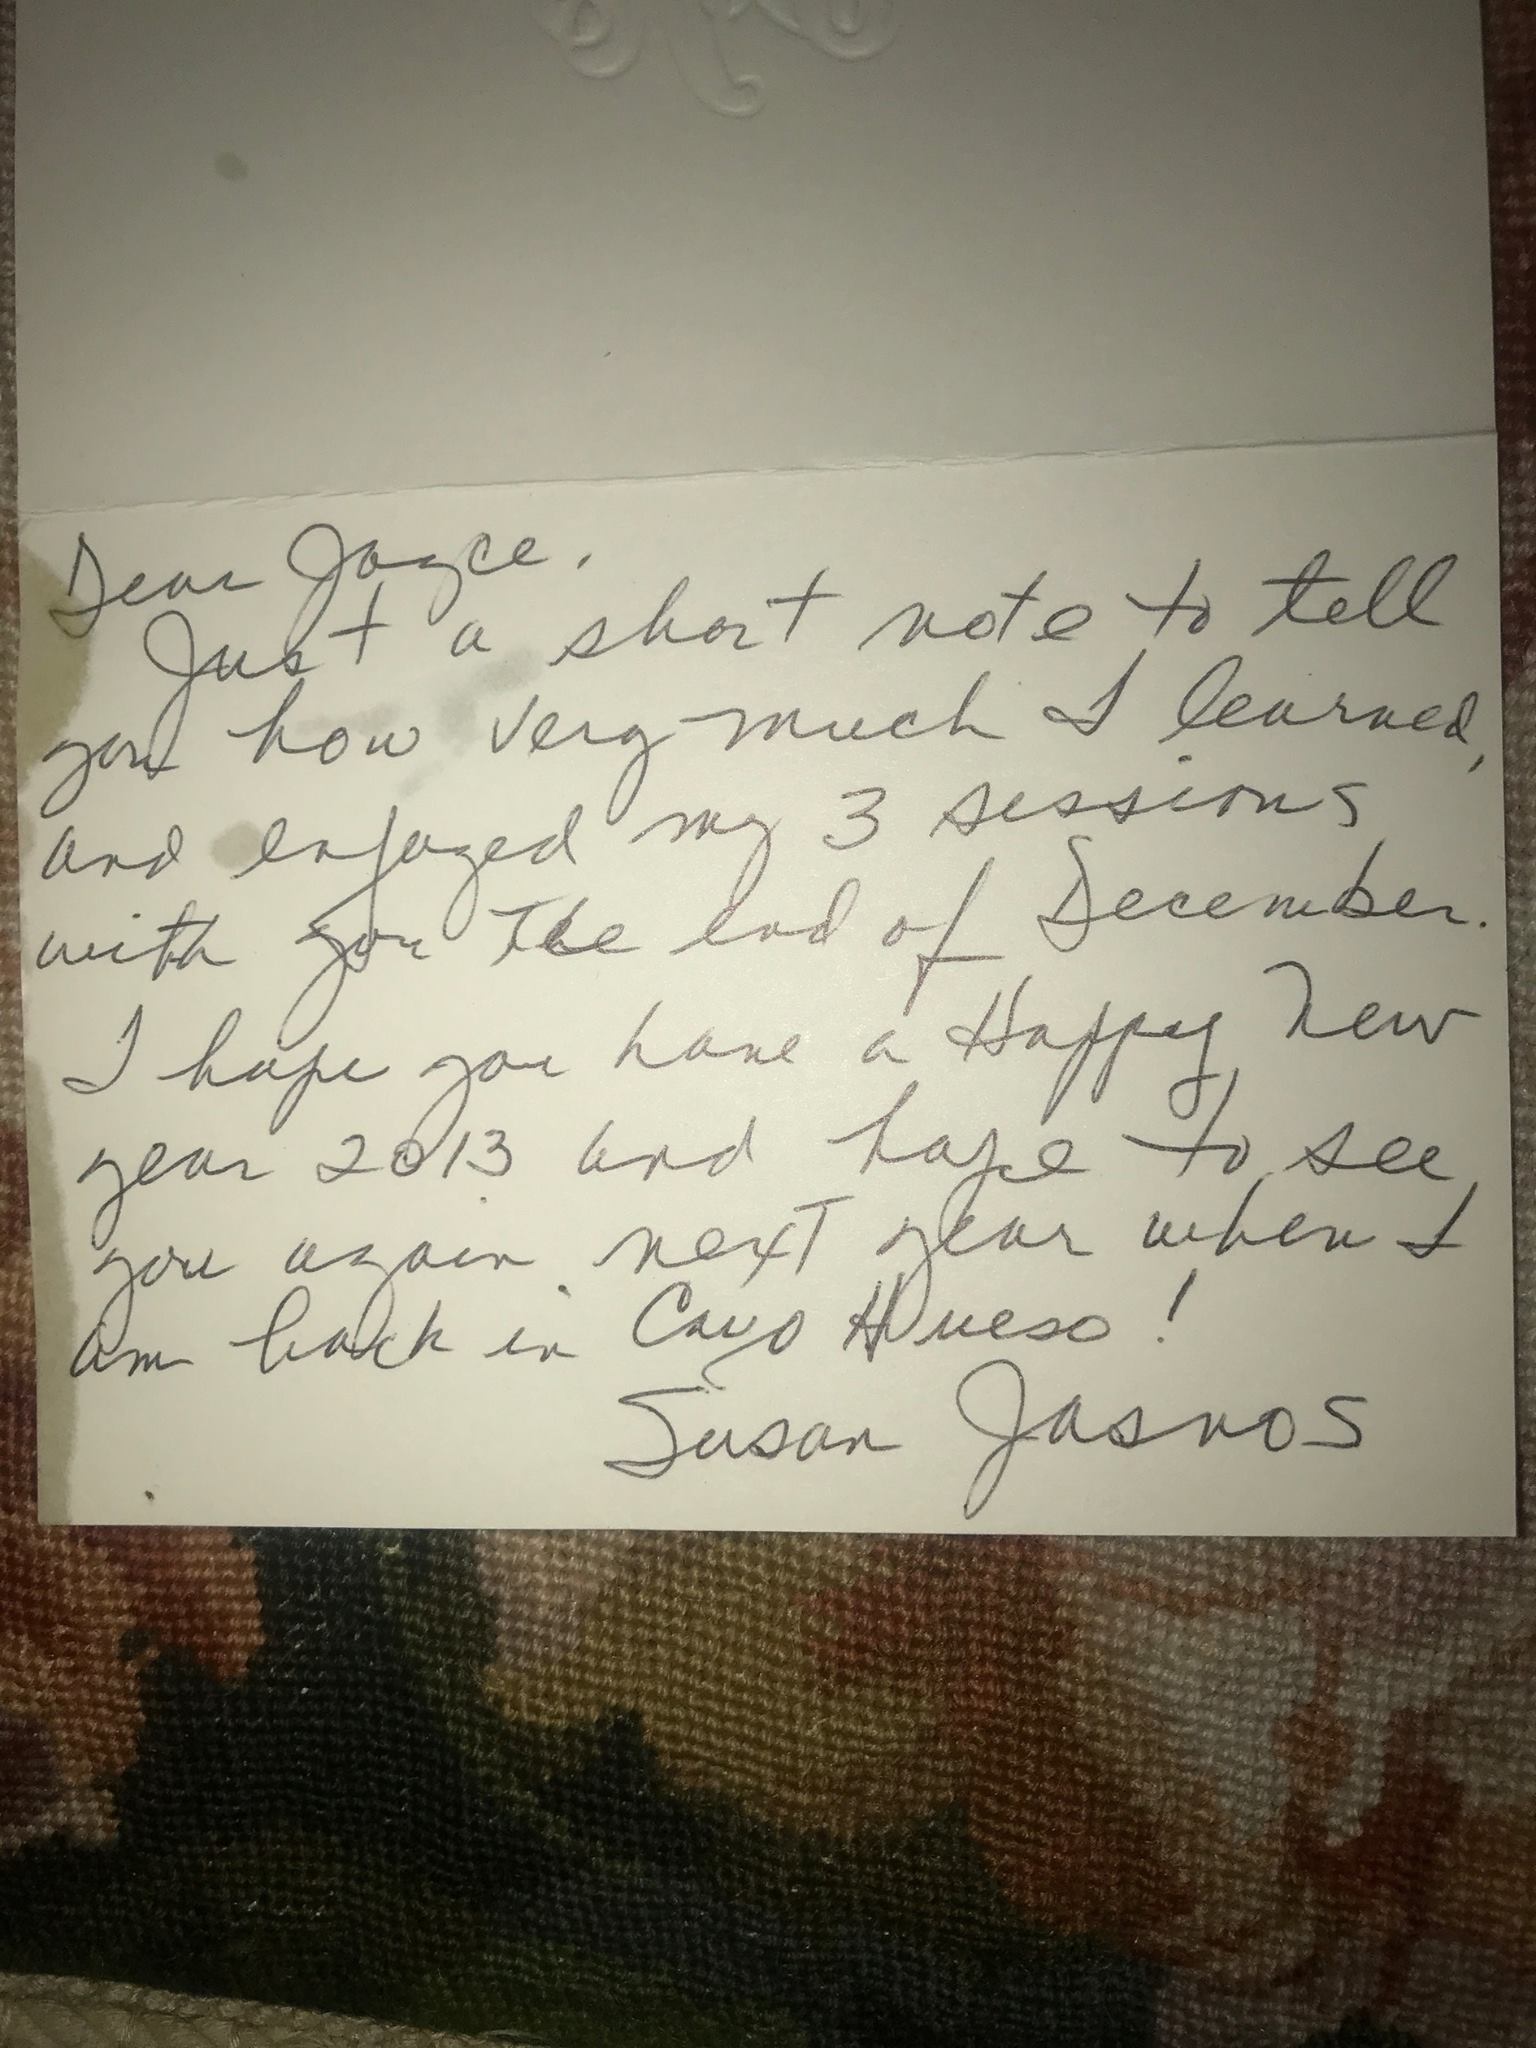 Dear Joyce,
Just a short note to tell
you how very much I learned,
and enjoyed my 3 sessions
with you the end of December.
I hope you have a Happy New
year 2013 and hope to see
you again next year when I
am back in Cayo Hueso!
Susan Jasnos